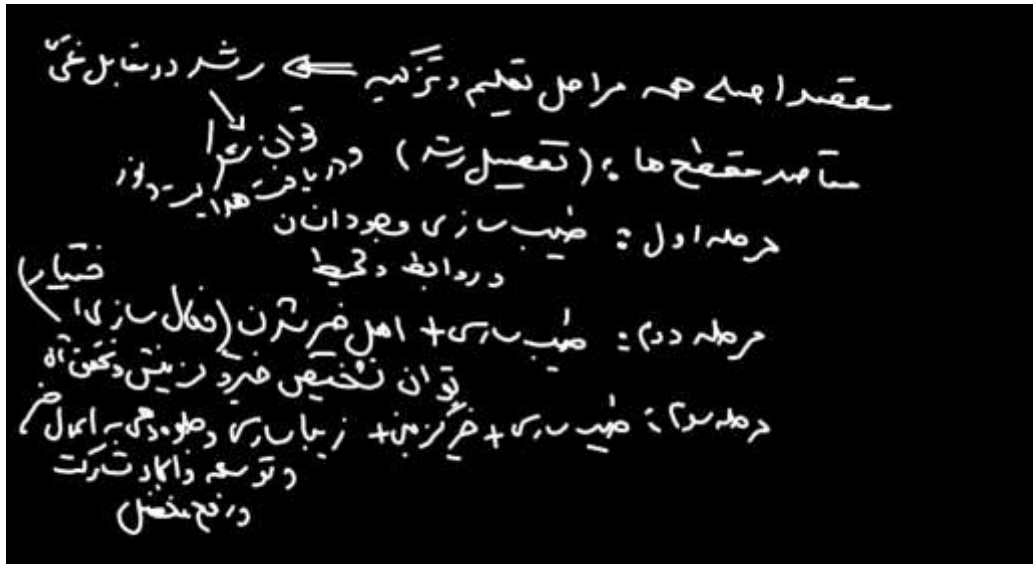 مقصد اصلی همه مراحل تعلیم و تزکیه ⇐ رشد در مقابل غیّ
قرآن را
مقاصد مقطع ها : (تفصیل رشد) و دریافت هدایت و نور
مرحله اول : طیب سازی وجود انسان
و روابط و محیط
مرحله دوم : طیب سازی + اهل خیر شدن (فعال سازی اختیار)
توان تشخیص خیر و گزینش و تحقق آن
مرحله سوم : طیب سازی + خیرگزینی + زیباسازی و جلوه دهی به اعمال خیر
و توسعه و ایجاد شرکت
در